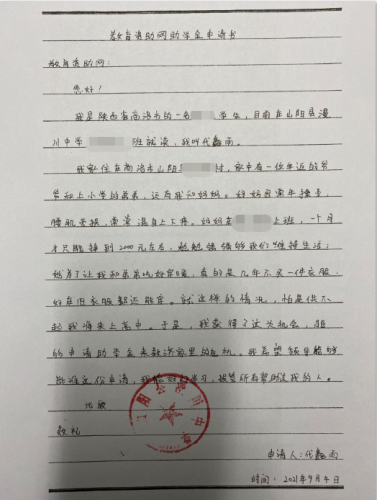 教育资助网助学金申请书
教育资助网：
您好！
我是陕西省商洛市的一名 学生，目前在山阳县漫
川中学 班就读，我叫代鑫雨。
我家住在商洛市山阳 村，家中有一位年迈的爷
爷和上小学的弟弟，还有我和妈妈。妈妈因常年操劳，
腰肌劳损， 上不去。妈妈在 上班，一个月
才只能挣到2000元左右，勉勉强强够我们维持生活；
她为了让我和弟弟吃好穿暖，真的是几年不买一件衣服，
好在旧衣服都还能穿。就这样的情况，怕是供不
起我将来上高中。于是，我获得了这次机会，
的申请助学金来 家里的危机。我希望领导能够
批准这份申请，我 学习，报答所有帮助过我的人。
此致
敬礼
申请人：代鑫雨
时间：2021年9月4日